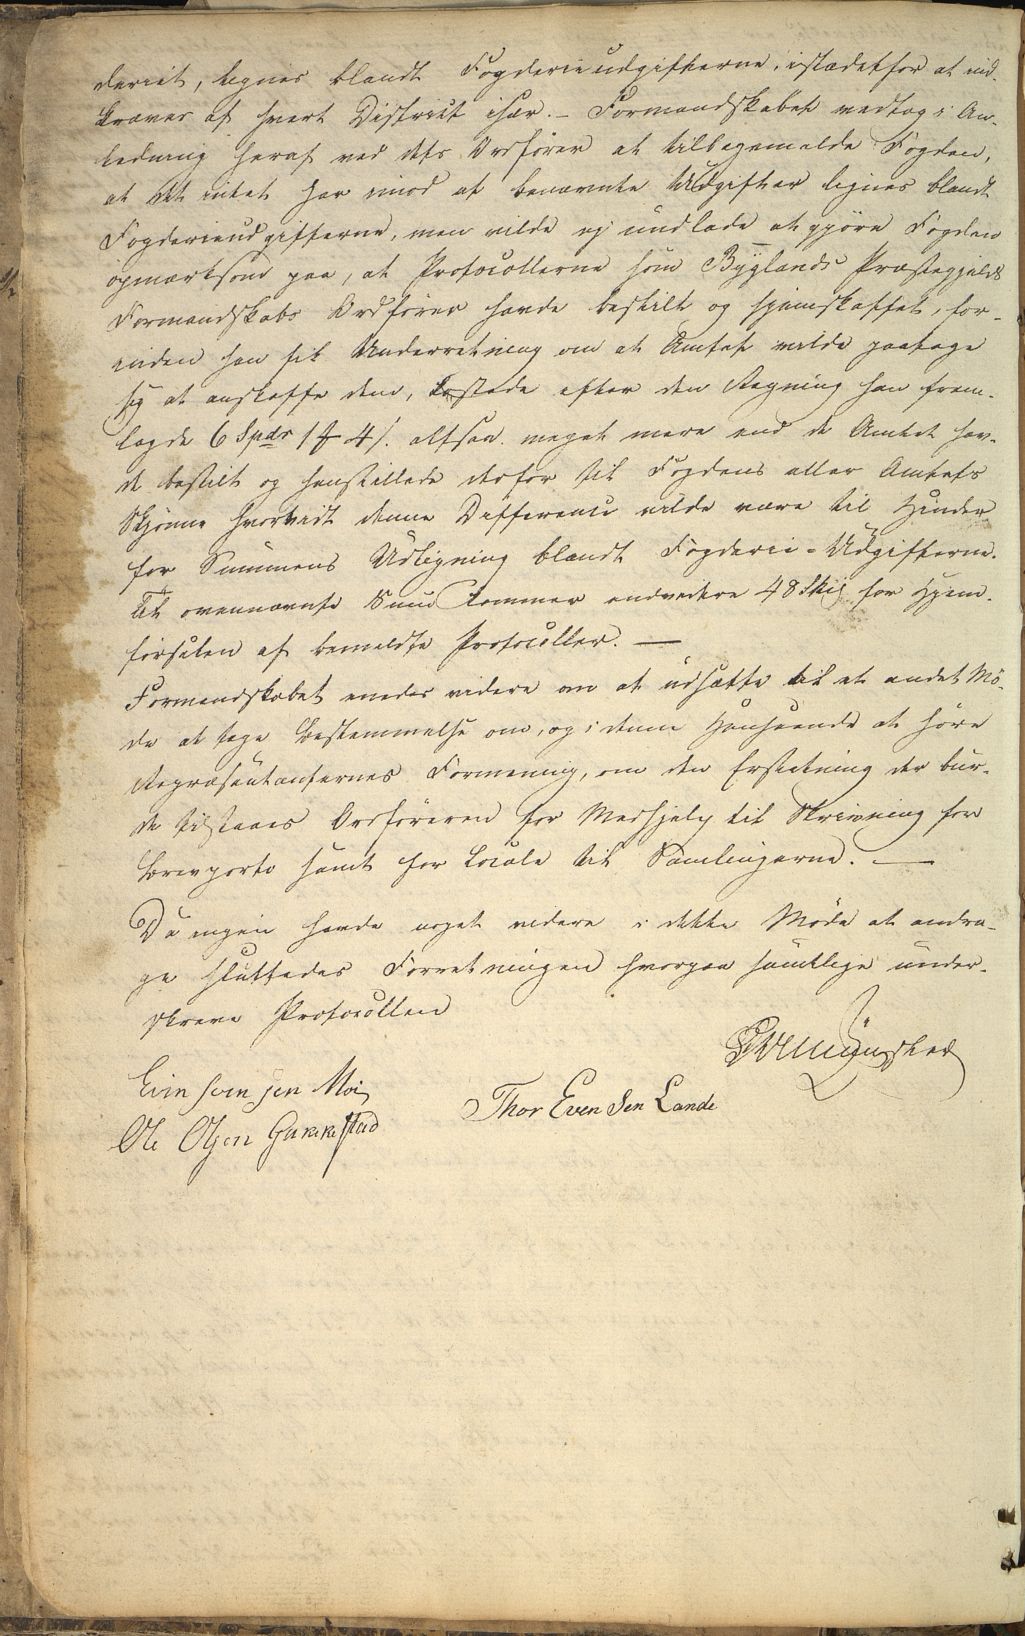 deriet, lignes blandt Fogderieudgifterne, istædetfor at ind-
kræves af hvert District især. – Formandskabet vedtog i An-
ledning heraf ved dets Ordfører at tilbagemelde Fogden,
at det intet har imod at benævnte Udgifter lignes blandt
Fogderieudgifterne, men vilde ej undlade at gjöre Fogden
opmærksom paa, at Protocollerne som Byglands Præstegjelds
Formandskabs Ordfører havde bestilt og hjemskaffet, for-
inden han fik Underretning om at Amtet vilde paatage
sig at anskaffe dem, kostede efter den Regning han frem-
lagde 6 Spdr 1 ƒ 4 s. altsaa meget mere end de Amtet hav-
de bestilt og henstillede derfor til Fogdens eller Amtets
Skjönne hvorvidt denne Difference vilde være til Hinder
for Summens Udligning blandt Fogderie-Udgifterne.
Til ovennævnte Sum kommer endvidere 48 Skij for Hjem-
förselen af bemeldte Protocoller. —
Formandskabet enedes videre om at udsætte til et andet Mö-
de at tage Bestemmelse om, og i denne Henseende at höre
Repræsentanternes Formening, om den Erstatning der bur-
de tilstaaes Ordföreren for Medhjelp til Skrivning for
Brevporto samt for Locale til Samlingerne. —
Da ingen havde noget videre i dette Möde at andra-
ge sluttedes Forretningen hvorpaa samtlige under-
skreve Protocollen
Even Svensen Moi
Thor Evensen Lande
Ole Olsen